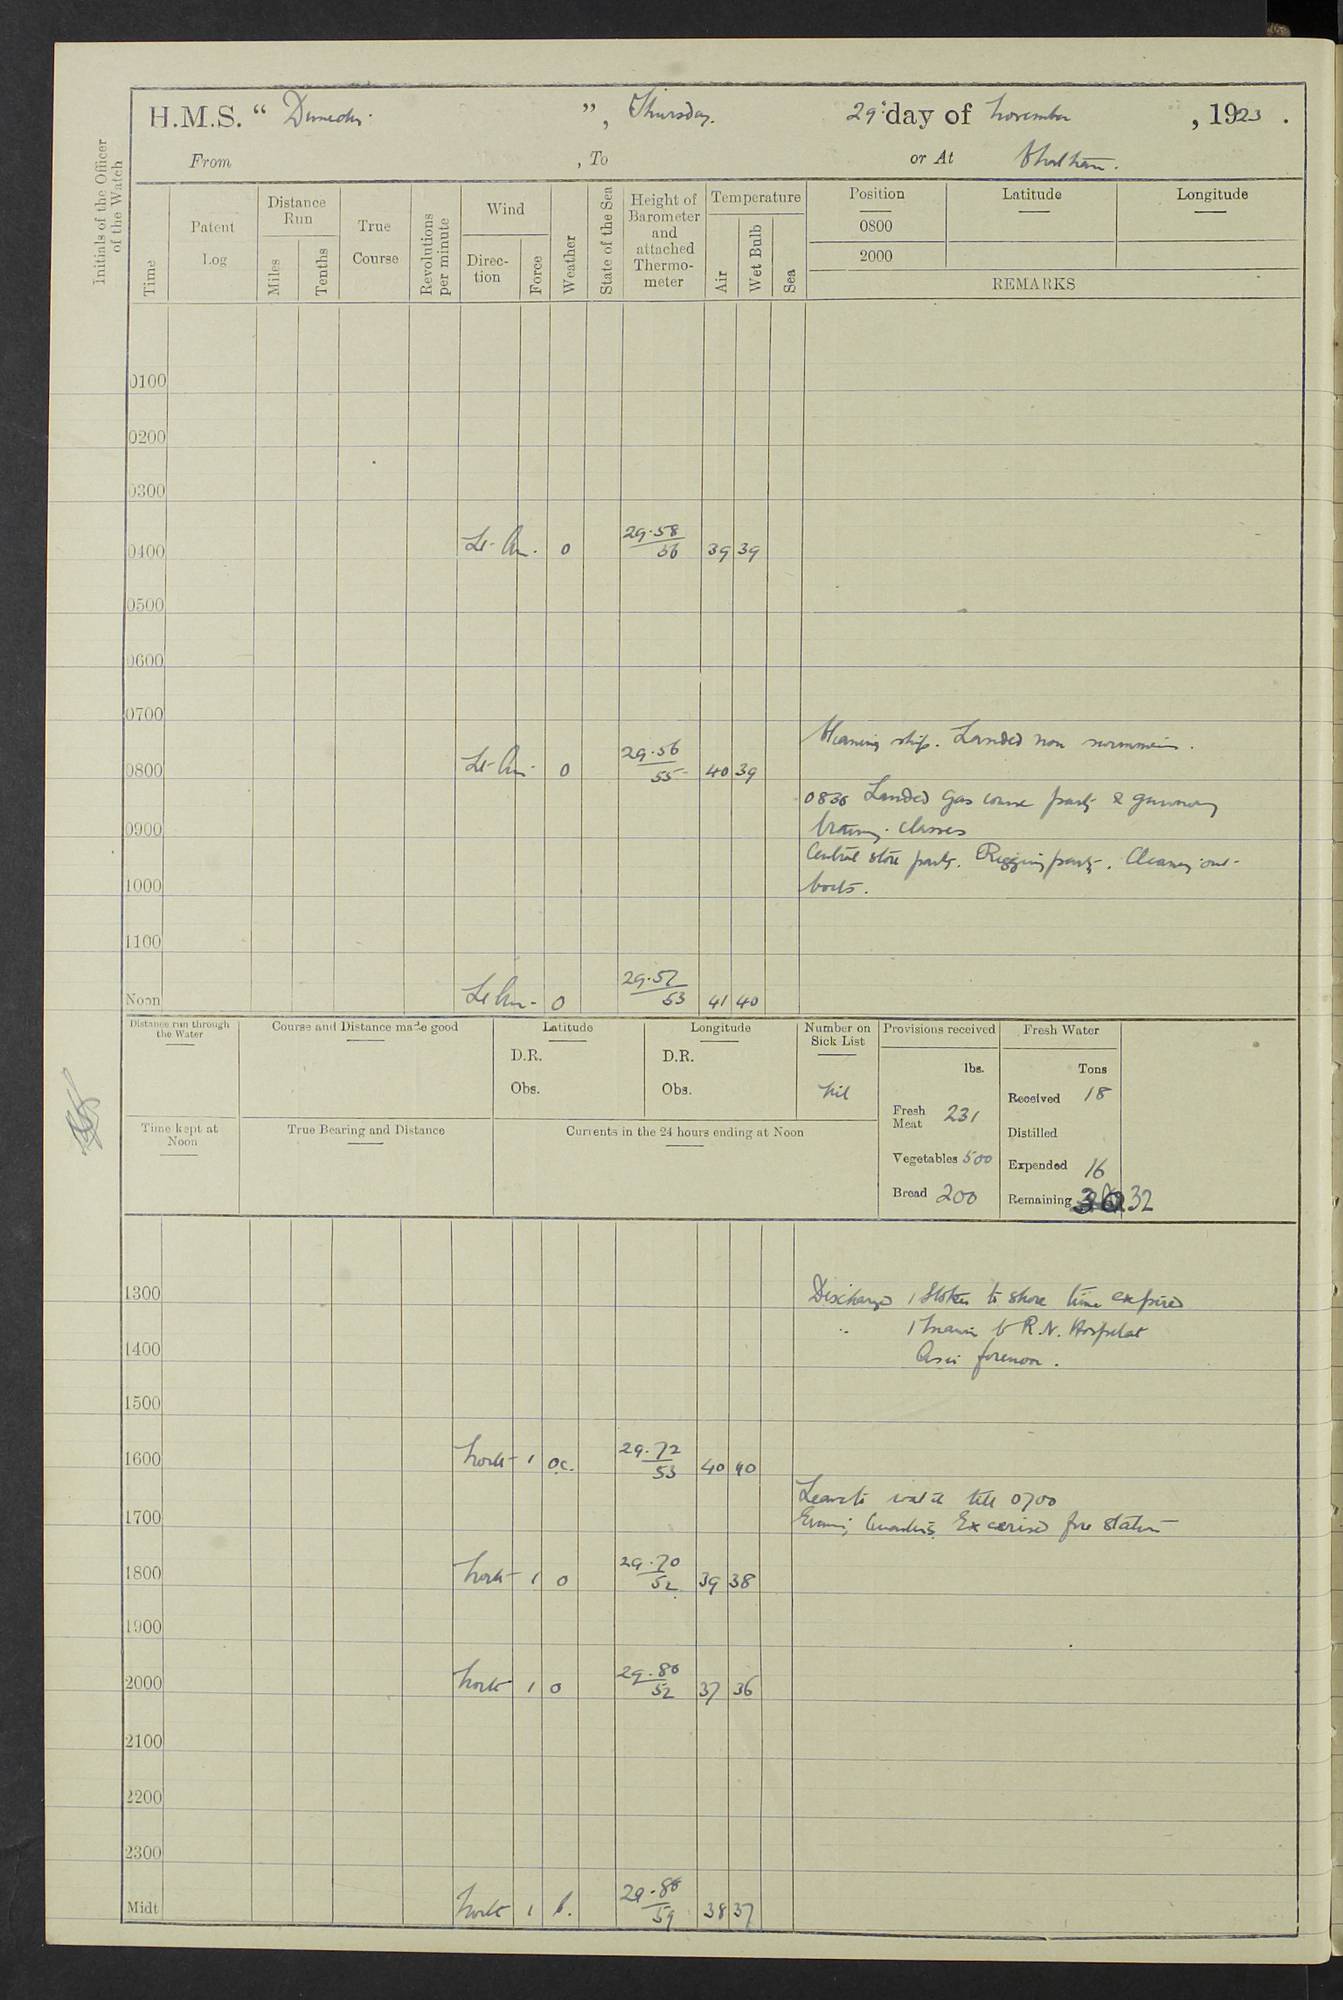 H.M.S. “ Dunedin. ”, Thursday. 29th day of November, 1923.
From , To or At Chatham.
Initials of the Officer of the Watch
Time
Patent Log
Distance Run
Miles
Tenths
True Course
Revolutions per minute
Wind
Direction
Force
Weather
State of the Sea
Height of Barometer and attached Thermometer
Temperature
Air
Wet Bulb
Sea
Position Latitude Longitude
0800
2000
REMARKS
0100
0200
0300
0400 Lt. Air. 0 29.58/56 39 39
0500
0600
0700
Cleaning ship. Landed non swimmers.
0800 Lt. Air. 0 29.56/55 40 39
0830 Landed Gas course party & gunnery
0900 training classes
Central store party. Rigging party. Cleaning out
1000 boats.
1100
Noon Lt Air. 0 29.57/53 41 40
Distance run through the Water
Course and Distance made good
Latitude
D.R.
Obs.
Longitude
D.R.
Obs.
Number on Sick List
Nil
Provisions received
lbs.
Fresh Meat 231
Vegetables 500
Bread 200
Fresh Water
Tons
Received 18
Distilled
Expended 16
Remaining 32
Time kept at Noon
True Bearing and Distance
Currents in the 24 hours ending at Noon
1300 Discharged 1 Stoker to shore time expired
" 1 Marine to R.N. Hospital
1400 forenoon.
1500
1600 North 1 oc. 29.72/53 40 40
Leave to watch till 0700
1700 Evening Quarters. Exercised fire stations
1800 North 1 0 29.70/52 39 38
1900
2000 North 1 0 29.80/52 37 36
2100
2200
2300
Midt North 1 b. 29.88/59 38 37